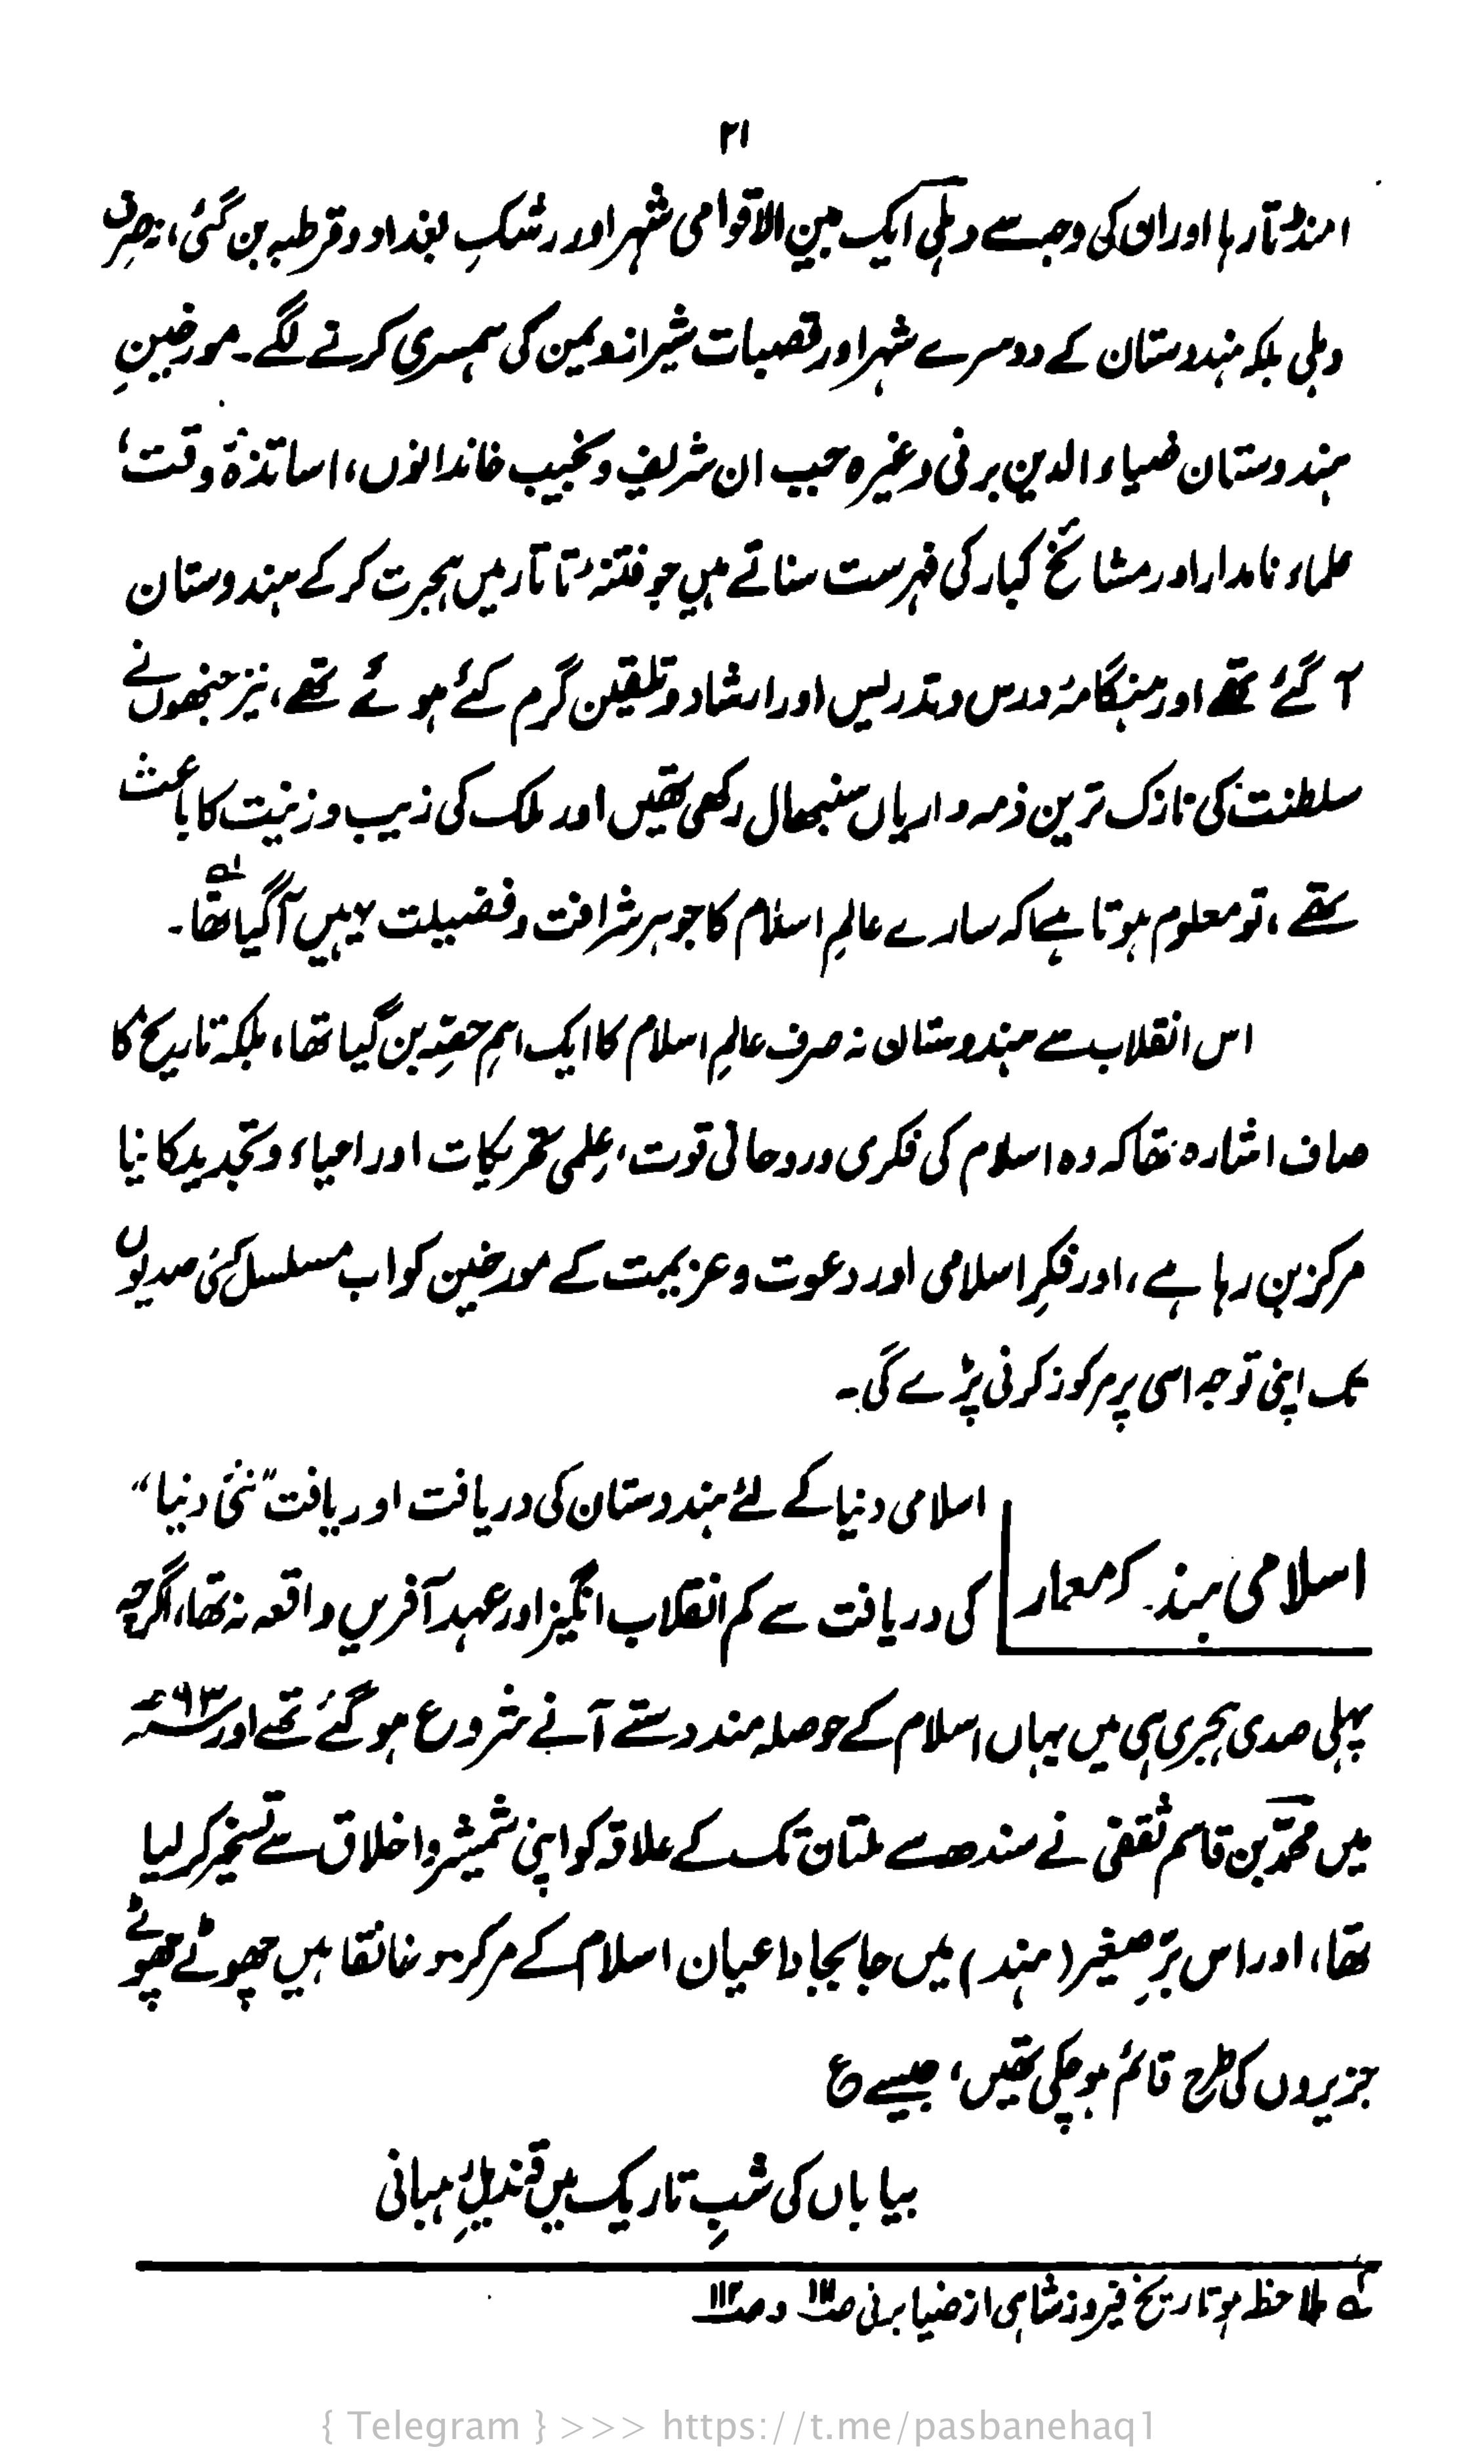 ۲۱
امنڈتا رہا اور ان کی وجہ سے دہلی ایک بین الاقوامی شہر اور رشکِ بغداد و قرطبہ بن گئی، نہ صرف
دہلی بلکہ ہندوستان کے دوسرے شہر اور قصبات شیراز و یمن کی ہمسری کرنے لگے۔ مورخینِ
ہندوستان ضیاء الدین برنی وغیرہ جب ان شریف و نجیب خاندانوں، اساتذۂ وقت،
علماء نامدار اور مشائخ کبار کی فہرست سناتے ہیں جو فتنۂ تاتار میں ہجرت کر کے ہندوستان
آ گئے تھے اور ہنگامۂ درس و تدریس اور ارشاد و تلقین گرم کئے ہوئے تھے، نیز جنھوں نے
سلطنت کی نازک ترین ذمہ داریاں سنبھال رکھی تھیں اور ملک کی زیب و زینت کا باعث
تھے، تو معلوم ہوتا ہے کہ سارے عالمِ اسلام کا جوہر شرافت و فضیلت یہیں آ گیا تھا۔ لہ
اس انقلاب سے ہندوستان نہ صرف عالمِ اسلام کا ایک اہم حصّہ بن گیا تھا، بلکہ تاریخ کا
صاف اشارہ تھا کہ وہ اسلام کی فکری و روحانی قوت، علمی تحریکات اور احیاء و تجدید کا نیا
مرکز بن رہا ہے، اور فکرِ اسلامی اور دعوت و عزیمت کے مورخین کو اب مسلسل کئی صدیوں
تک اپنی توجہ اسی پر مرکوز کرنی پڑے گی۔
اسلامی ہند کے معمار
اسلامی دنیا کے لئے ہندوستان کی دریافت اور یافت "نئی دنیا"
کی دریافت سے کم انقلاب انگیز اور عہد آفریں واقعہ نہ تھا، اگرچہ
پہلی صدی ہجری ہی میں یہاں اسلام کے حوصلہ مند دستے آنے شروع ہو گئے تھے اور ۹۳ھ
میں محمّد بن قاسم ثقفی نے سندھ سے ملتان تک کے علاقہ کو اپنی شمشیر و اخلاق سے تسخیر کر لیا
تھا، اور اس برِّصغیر (ہند) میں جا بجا داعیان اسلام کے مرکز و خانقاہیں چھوٹے چھوٹے
جزیروں کی طرح قائم ہو چکی تھیں، جیسے ع
بیاباں کی شبِ تاریک میں قندیلِ رہبانی
لہ ملاحظہ ہو تاریخ فیروز شاہی از ضیا برنی ص۱۱۱ و ص۱۱۲
{ Telegram } >>> https://t.me/pasbanehaq1